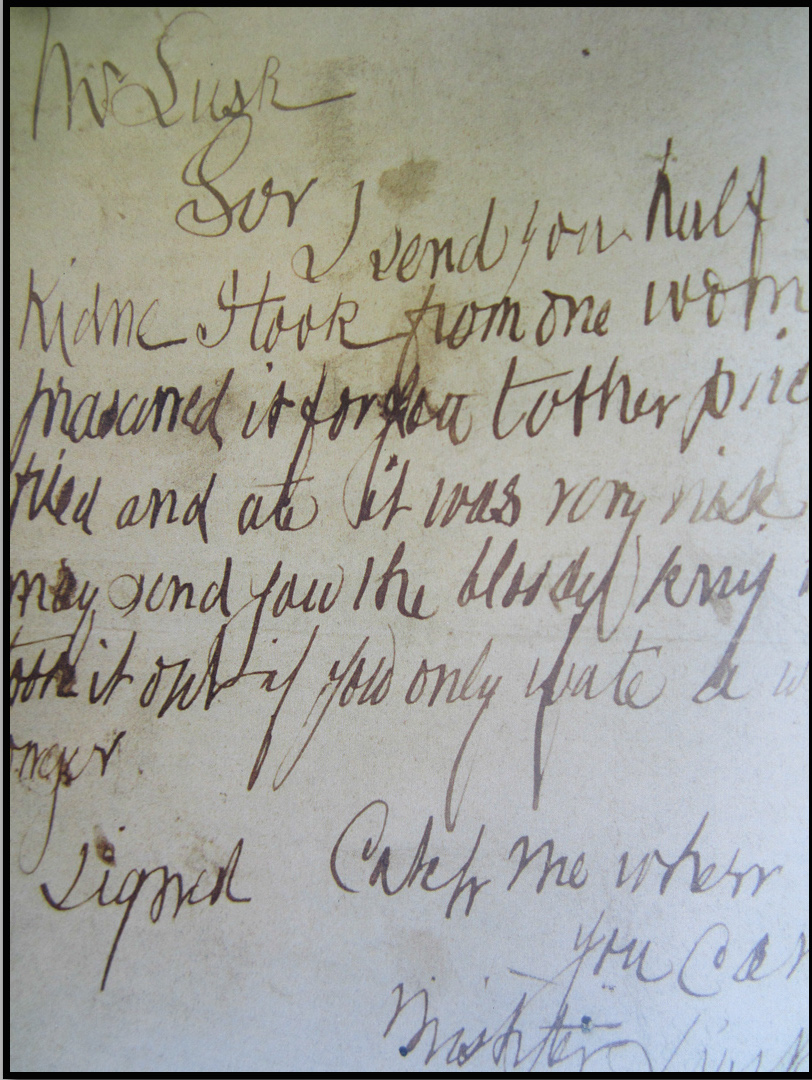 Mr Lusk
Sor
I send you half
Kidne I took from one wom
prasarved it for you tother pie
fried and ate it was very nise
may send you the bloody knif
took it out if you only wate a w
onger
signed Catch me when
you Can
Mishter Lusk